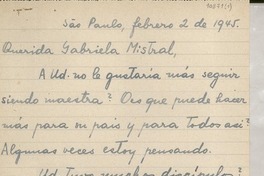 São Paulo, febrero 2 de 1945.
Querida Gabriela Mistral,
A Ud. no le gustaria más seguir
siendo maestra? Oro que puede hacer
más para su pais y para todos asi?
Algunas veces estoy pensando.
Ud. tuvo muchos discípulos?